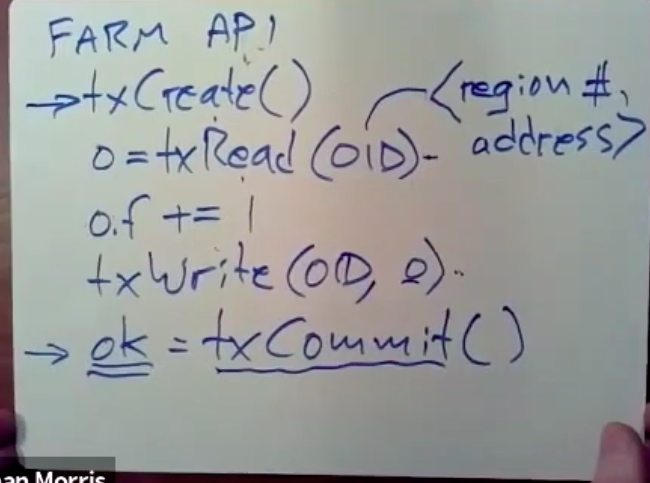 FARM API
→txCreate() <region #,
o = txRead (OID) address>
o.f += 1
txWrite (OID, o)
→ ok = txCommit()
an Morris